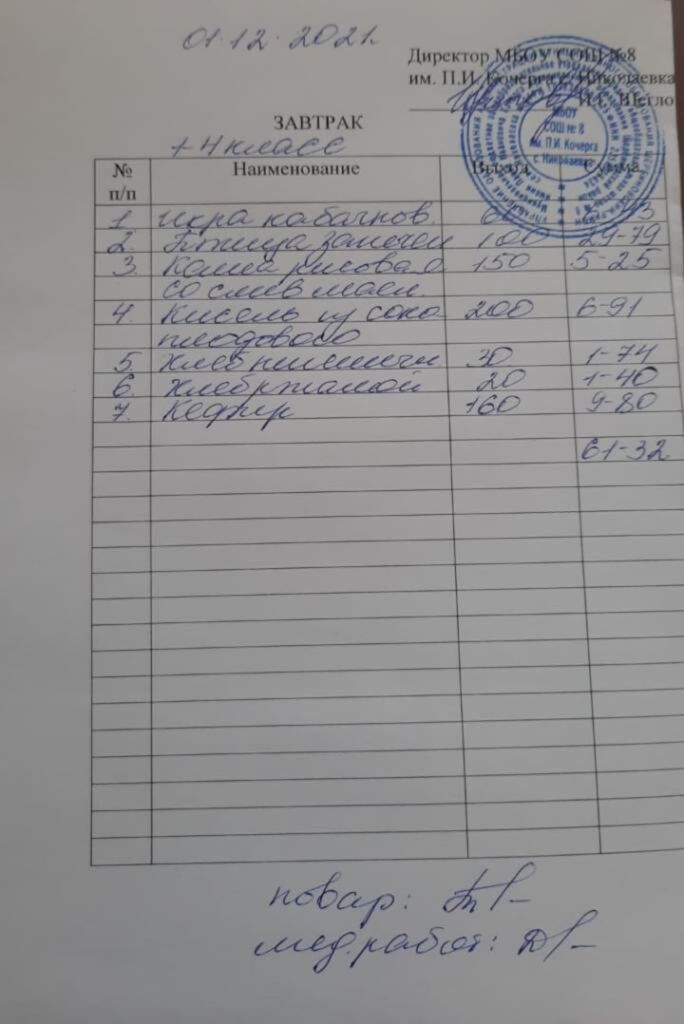 01.12.2021.
Директор МБОУ СОШ №8
им. П.И. Кочерга с. Николаевка
И.Г. Щегло
ЗАВТРАК
МБОУ
СОШ № 8
им. П.И. Кочерга
с. Николаевка
1-4 класс
№ п/п Наименование Выход Сумма
1. Икра кабачков. 60
2. Птица запечен 100 29-79
3. Каша рисовая 150 5-25
со слив масл.
4. Кисель из сока 200 6-91
плодового
5. Хлеб пшеничн 30 1-74
6. Хлеб ржаной 20 1-40
7. Кефир 160 9-80
61-32
повар:
мед.работ: